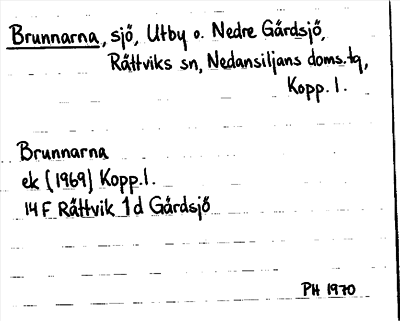 Brunnarna, sjö, Utby o. Nedre Gårdsjö,
Rättviks sn, Nedansiljans doms.tq,
Kopp. l.
Brunnarna
ek (1969) Kopp.l.
14 F Rättvik 1 d Gårdsjö
PH 1970